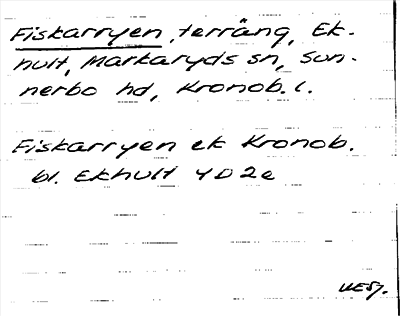 Fiskarryen, terräng, Ek-
hult, Markaryds sn, Sun-
nerbo hd, Kronob. l.
Fiskarryen ek Kronob.
bl. Ekhult 4D2e